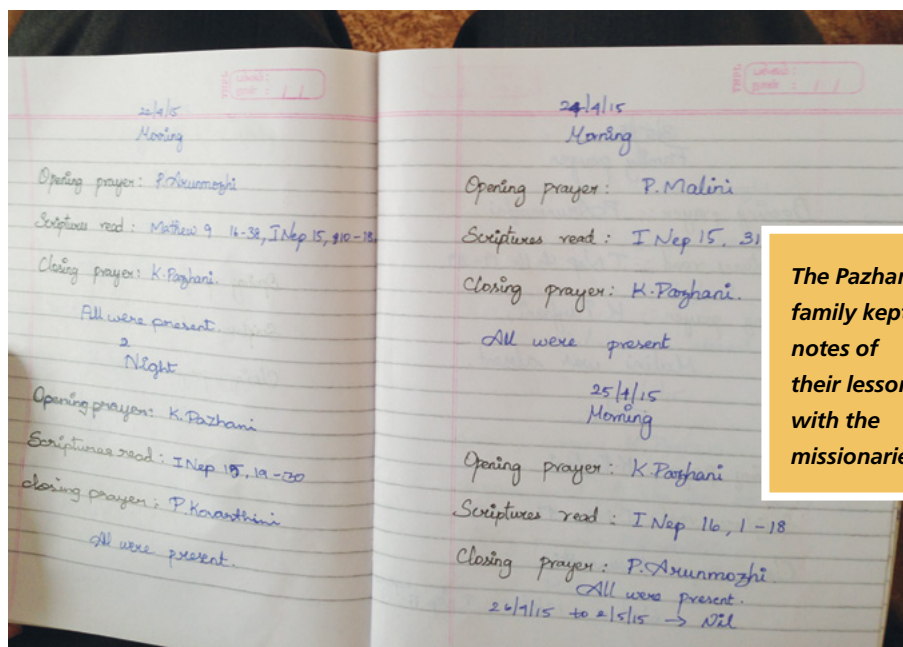 22/4/15
Morning
Opening prayer: P.Arunmozhi
Scriptures read: Mathew 9 16-38, I Nep 15, 10-18.
Closing prayer: K.Pazhani.
All were present.
Night
Opening prayer: K.Pazhani
Scriptures read: I Nep 15, 19-30
closing prayer: P.
All were present.
24/4/15
Morning
Opening prayer: P.Malini
Scriptures read: I Nep 15, 31
Closing prayer: K.Pazhani.
All were present
25/4/15
Morning
Opening prayer: K.Pazhani
Scriptures read: I Nep 16, 1-18
Closing prayer: P.Arunmozhi
All were present.
26/4/15 to 2/5/15 → Nil
The Pazhan
family kept
notes of
their lesson
with the
missionarie